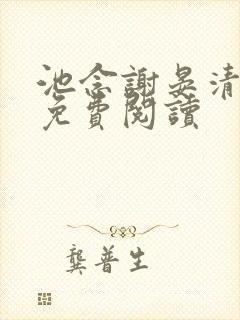 池念謝晏清
免費閱讀
龔普生